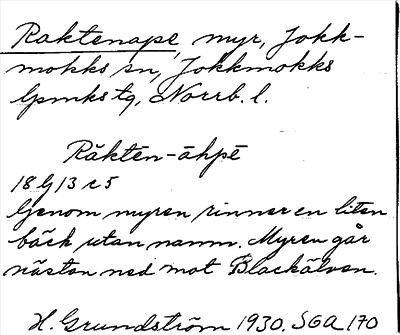 Raktenape, myr, Jokk-
mokks sn, Jokkmokks
lpmks tg, Norrb. l.
Räkten-āhpē
18 G 13 c 5
Genom myren rinner en liten
bäck utan namn. Myren går
nästan ned mot Blackälven.
H. Grundström 1930. SGA 170